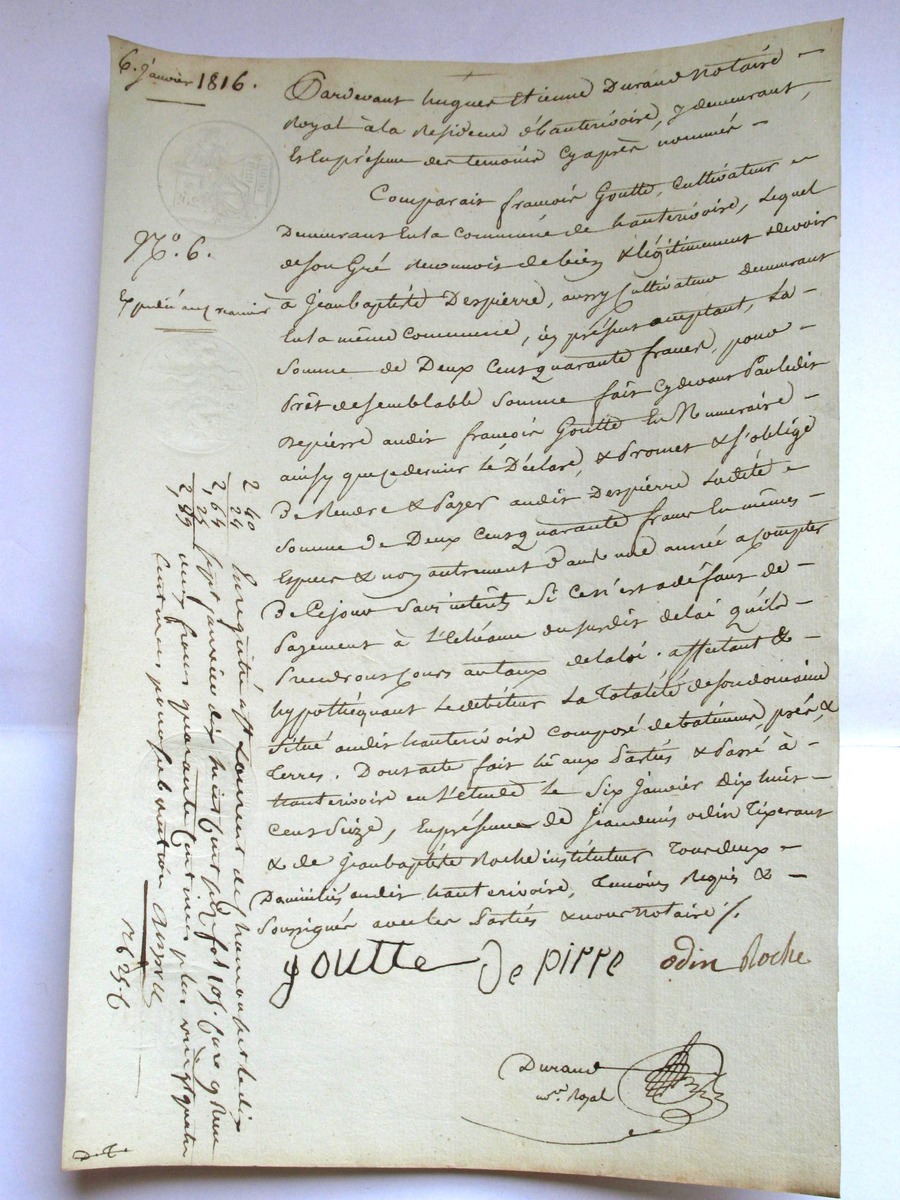 6. Janvier 1816.
Pardevant hugues Etienne Durand Notaire
Royal à la Residence d'hauterivoire, y demeurant,
Et En présence des temoins Cyaprès nommés
Comparait françois Goutte, Cultivateur
Demeurant En la Commune de hauterivoire, Lequel
de son Gré reconnoit de bien & légitimement devoir
N.º 6.
à Jeanbaptiste Despierre, aussy Cultivateur demeurant
Expédié aux
En la même Commune, icy présent acceptant, La
Somme de Deux Cent quarante francs, pour
Prêt de semblable Somme fait Cydevant Par ledit
Depierre audit françois Goutte En Numeraire
ainsy que ce dernier le Déclare, & Promet & S'oblige
De Rendre & Payer audit Despierre Ladite
Somme de Deux Cent quarante francs En mêmes
Especes & non autrement dans une année a Compter
De Ce jour Sans intérêts Si Ce n'est a défaut de
Payement à l'Echéance du susdit delai qu'ils
Prendront Cours au taux de la loi. affectant &
hypothéquant Le débiteur La Totalité de son domaine
Situé audit hauterivoire Composé de batiment, prés, &
Terres. Dont acte fait lu aux Parties & Passé à
hauterivoire en l'étude le Six Janvier Dix huit
Cent Seize, En présence de Jean denis odin Tixerant
& de Jeanbaptiste Roche instituteur Tous deux
Domiciliés audit hauterivoire, Temoins Requis &
Soussignés avec les Parties & nous Notaire /.
Goutte De pirre odin Roche
Durand
no.re Royal
2 40
24
2,64
25
2,89
Enregistré à St Laurent de Chamousset le dix
Sept janvier dix huit Cent seize fol 105.
deux francs quarante Centimes plus vingt quatre
Centimes pour subvention